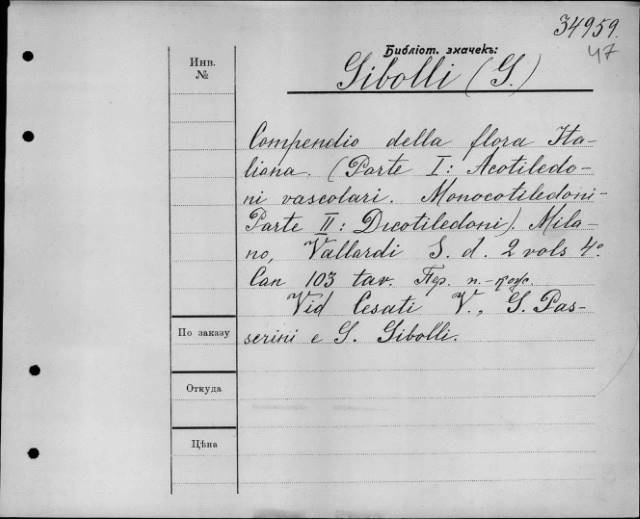 34959.
47
Библіот. значекъ:
Инв.
№
Gibelli (G.)
Compendio della flora Ita-
liana. (Parte I: Acotiledo-
ni vascolari. Monocotiledoni-
Parte II: Dicotiledoni). Mila-
no, Vallardi S. d. 2 vols 4°.
Can 103 tav. Пер. п.-кож.
Vid Cesati V., G. Pas-
serini e G. Gibelli.
По заказу
Откуда
Цѣна